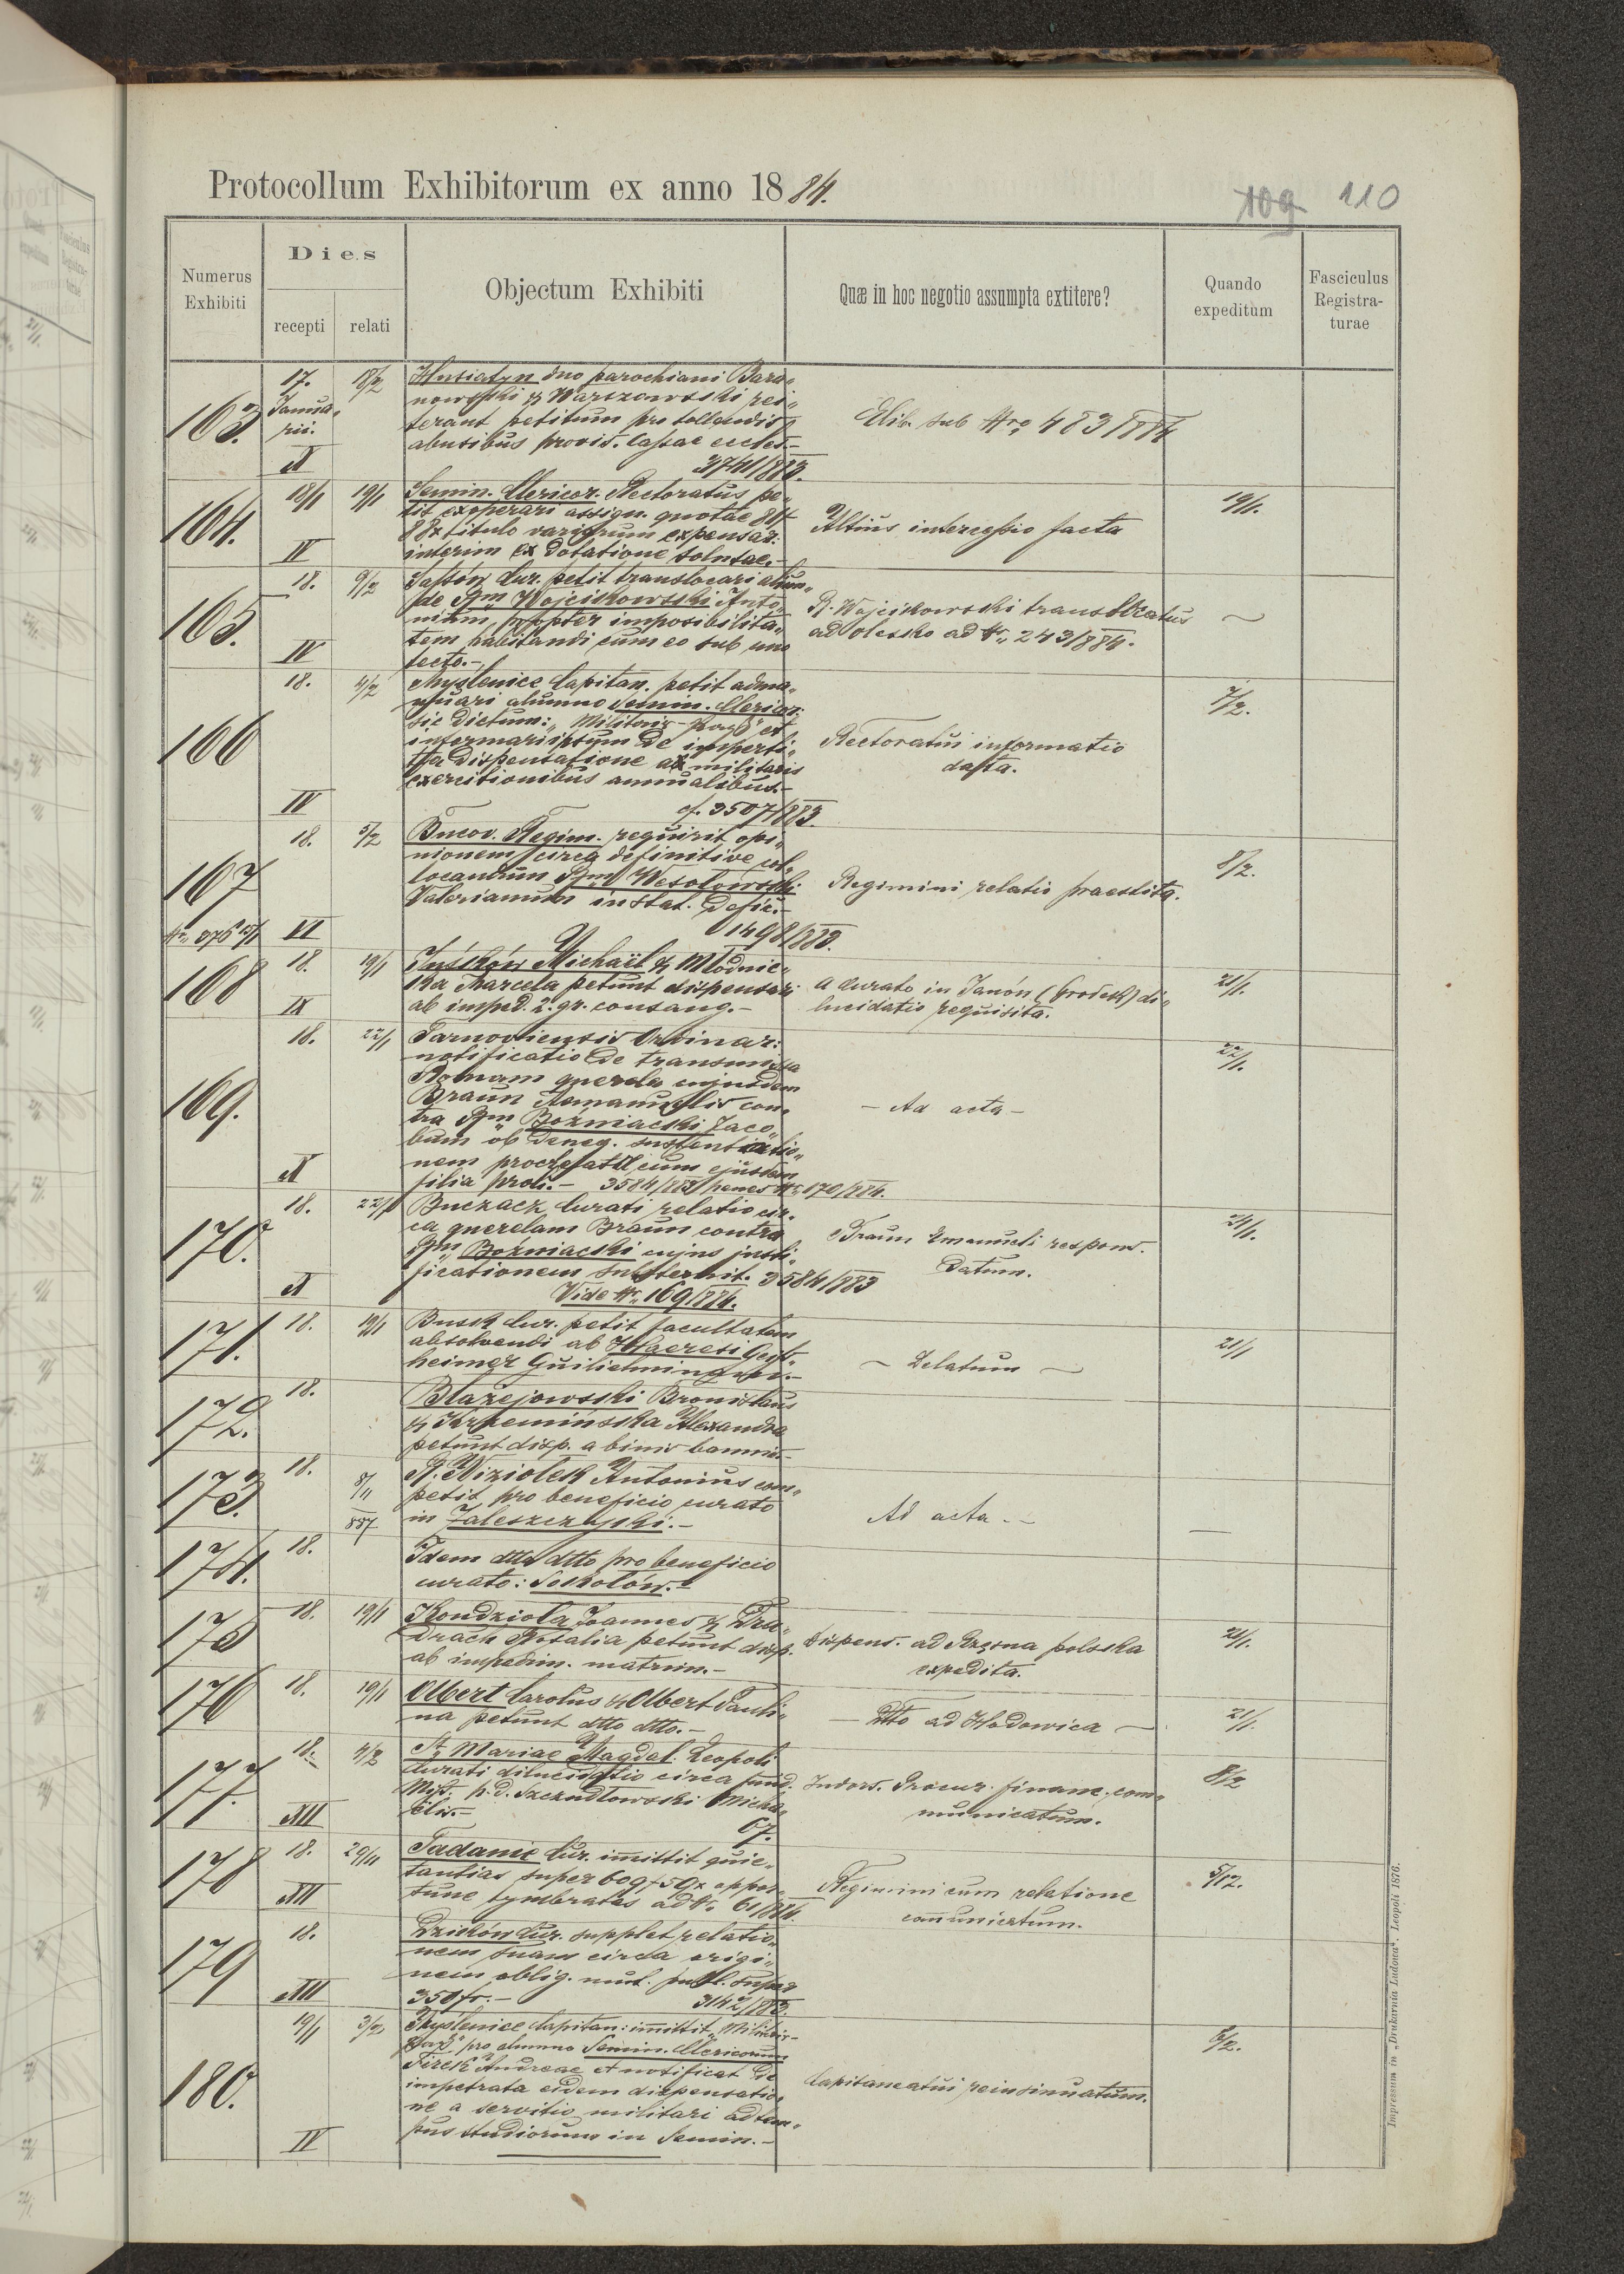 Protocollum Exhibitorum ex anno 1884.
109 110
Numerus Exhibiti
Dies
recepti
relati
Objectum Exhibiti
Quæ in hoc negotio assumpta extitere?
Quando expeditum
Fasciculus Registra-
turae
163.
17. Janua„
rii.
X
18/2
Husiatyn duo parochiani Bara„
nowski & Warszowski rei„
terant petitum pro tollendis
abusibus provis. cassae eccles.-
3741/883.
Elib. sub Nro 483/884
164.
18/1
IV
19/1
Semin. Clericor. Rectoratus pe„
tit exoperari assign. quotae 81f
88x titulo variorum expensar:
interim ex dotatione solutae.-
Altius intercessio facta
19/1.
165.
18.
IV
9/2
Sassów Cur. petit translocari abun„
de Rm Wojcikowski Anto„
nium propter imposibilita„
tem habitandi cum eo sub uno
tecto.-
R. Wojcikowski translocatus
ad Olesko ad Nr. 243/884.
~
166
18.
IV
4/2
Myslenice Capitan. petit adma„
nuari alumno Semin. Clericor.
sic dictum: „Militair-Pass" et
informari ipsum de imperti„
ta dispensatione ab militaris
exercitionibus annualibus.-
cf. 3507/883.
Rectoratui informatio
data.
7/2.
167
Nr. 376 15/1
18.
VI
5/2
Bucov. Regim. requirit opi„
nionem circa definitive col„
locandum Rm Wesołowski
Valerianum in stat. defic.-
1498/883.
Regimini relatio praestita.
8/2.
168
18.
IX
19/1
Juśków Michaël & Młodnic„
ka Marcela petunt dispensari
ab imped. 2. gr. consang.-
a Curato in Janów (Grodek) di„
lucidatio requisita.
21/1.
169.
18.
X
22/1
Tarnoviensis Ordinar:
notificatio de transmissa
Romam querela cujusdam
Braun Emanuelis con„
tra Rm Boźniacki Jaco„
bum ob deneg. sustentatio„
nem procreatae cum ejusdem
filia proli.- 3584/883 penes Nr. 170/884.
- Ad acta -
22/1.
170.
18.
X
22/1
Buczacz Curati relatio cir„
ca querelam Braun contra
Rm Boźniacki cujus justi„
ficationem substernit. 3584/883
Vide Nr. 169/884.
Braun Emanueli respons.
datum.
24/1.
171.
18.
19/1
Busk Cur. petit facultatem
absolvendi ab Haeresi Gest„
heimer Guilielminam.-
- Delatum -
21/1
172.
18.
Błażejowski Bronislaus
& Krzemińska Alexandra
petunt disp. a binis bannis.-
173.
18.
8/11
887
R. Niziołek Antonius com„
petit pro beneficio curato
in Zaleszczyki.-
Ad acta.-
—
174.
18.
Idem dtto dtto pro beneficio
curato: Sokołów.-
175
18.
19/1
Kondzioła Joannes & Dru„
drach Rosalia petunt disp.
ab impedim. matrim.-
dispens. ad Rzęsna polska
expedita.
21/1.
176
18.
19/1
Olbert Carolus & Olbert Pauli„
na petunt dtto dtto.-
- Dtto ad Hodowica -
21/1.
177.
18.
XII
4/2
St. Mariae Magdal. Leopoli
Curati dilucidatio circa fund.
Miss. p. d. Szczudłowski Micha„
ëlis.-
67.
Indors. Procur. financ. com„
municatum.
8/2
178
18.
XII
29/11
Tadanie Cur. imittit quie„
tantias super 609f 50x oppor„
tune tymbratas ad Nr. 61/884.
Regimini cum relatione
communicatum.
5/12.
179
18.
XII
Dzików Cur. supplet relatio„
nem suam circa origi„
nem oblig. mut. publ. super
350fr.-
3142/883.
180.
19/1
IV
3/2
Myślenice Capitan: imittit „Militair-
Pass" pro alumno Semin. Clericorum
Firek Andreae et notificat de
impetrata eidem dispensatio„
ne a servitio militari ad tem„
pus studiorum in Semin.-
Capitaneatui reinsinuatum.
6/2.
Impressum in „Drukarnia Ludowa". Leopoli 1876.